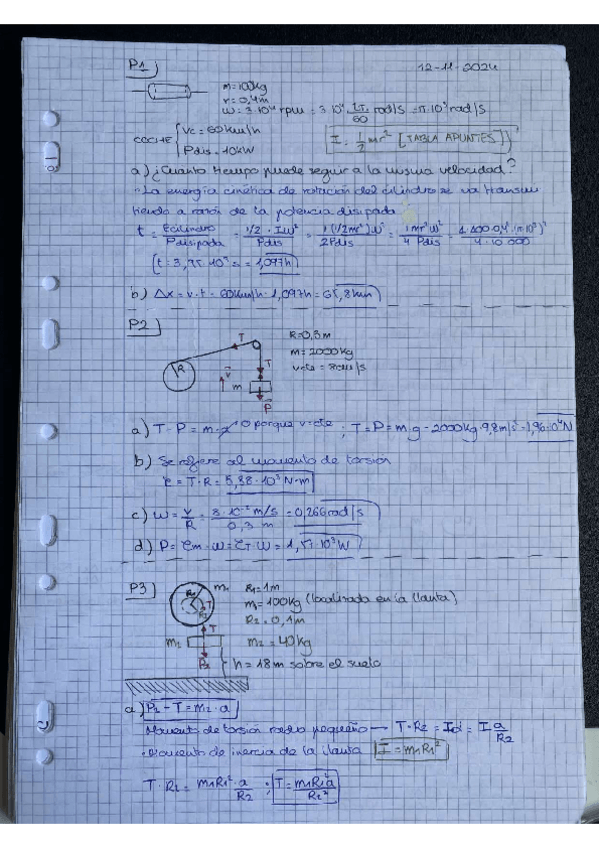 P1) 12-11-2024
m=100kg
r=0,4m
ω=3·10⁴ rpm = 3·10⁴ 2π/60 rad/s = π·10³ rad/s
COCHE { Vc=60km/h
Pdis=10kW
I = 1/2 mr² [TABLA APUNTES]
a) ¿Cuánto tiempo puede seguir a la misma velocidad?
· La energía cinética de rotación del cilindro se va transmi
tiendo a razón de la potencia disipada
t = Ecilindro/Pdisipada = 1/2·Iω²/Pdis = 1(1/2mr²)ω²/2Pdis = 1mr²ω²/4 Pdis = 1·100·0,4²·(π·10³)²/4·10 000
[t = 3,95·10³s = 1,097h]
b) Δx = v·t = 60km/h·1,097h = 65,8km
P2)
R
T
T
v
m
P
R=0,3m
m=2000kg
vcte = 8cm/s
a) T-P = m·a 0 porque v=cte ; T=P=m·g = 2000kg·9,8m/s² = 1,96·10⁴N
b) Se refiere al momento de torsión
τ = T·R = 5,88·10³ N·m
c) ω = v/R = 8·10⁻² m/s / 0,3 m = 0,266rad/s
d) P = τm·ω = τT·ω = 1,57·10³W
P3)
R1
R2
m1
T
T
m2
P2
R1=1m
m1=100kg (localizada en la llanta)
R2=0,1m
m2=40kg
h=18m sobre el suelo
a) P2-T=m2·a
Momento de torsión radio pequeño — T·R2 = Iα = I a/R2
· Momento de inercia de la llanta I=m1R1²
T·R2 = m1R1²·a/R2 ; T = m1R1²a/R2²